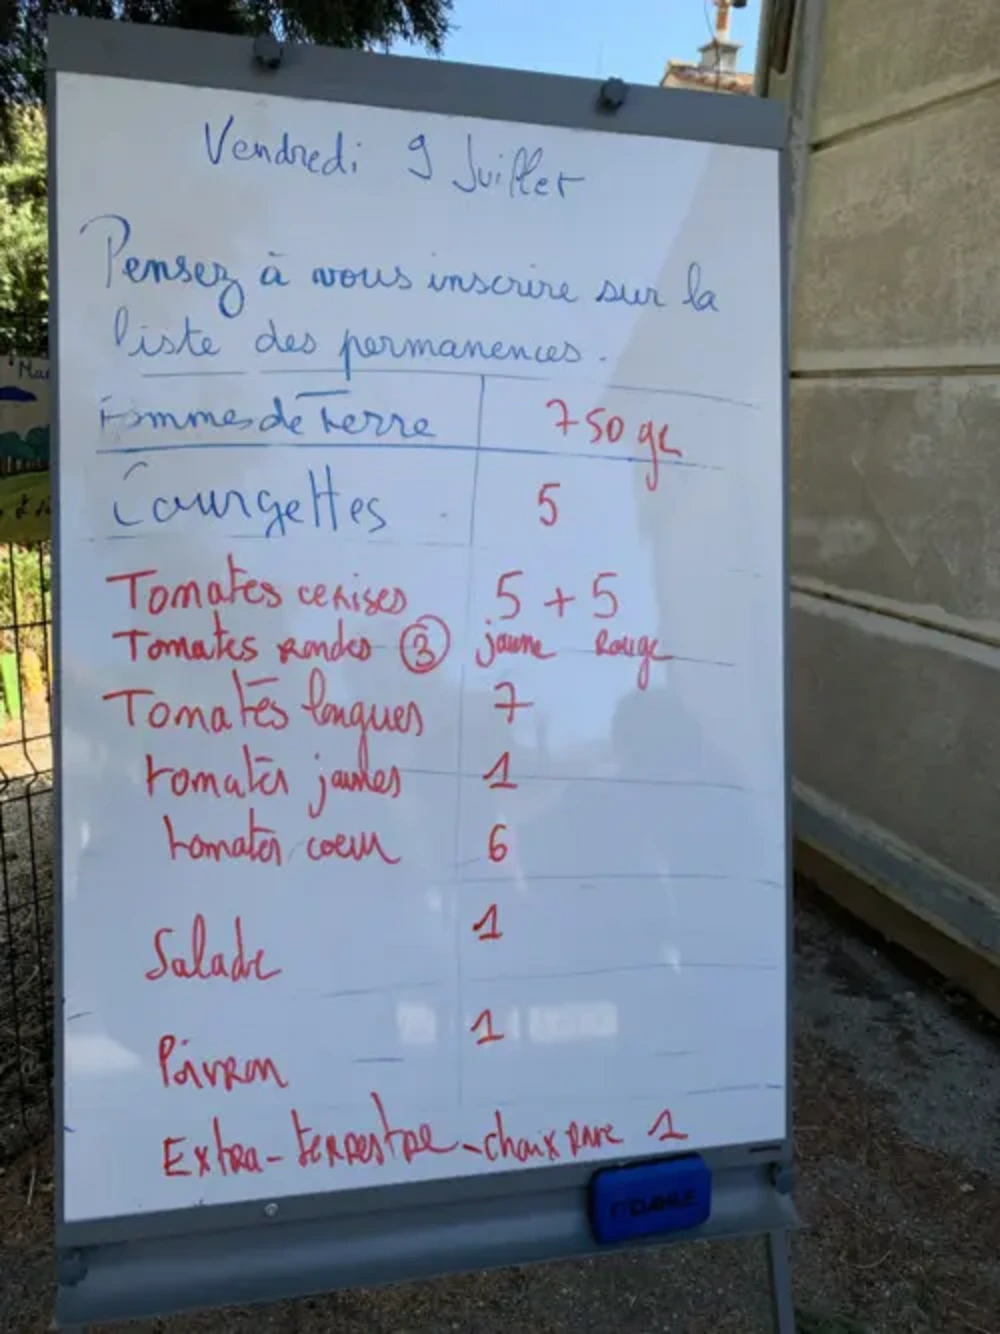 Vendredi 9 Juillet
Pensez à vous inscrire sur la
liste des permanences.
Pommes de Terre 750 gr
Courgettes 5
Tomates cerises 5 + 5
Tomates rondes ③ jaune Rouge
Tomates longues 7
tomates jaunes 1
tomates coeur 6
Salade 1
Poivron 1
Extra-terrestre - choux rave 1
DAHLE
Mar